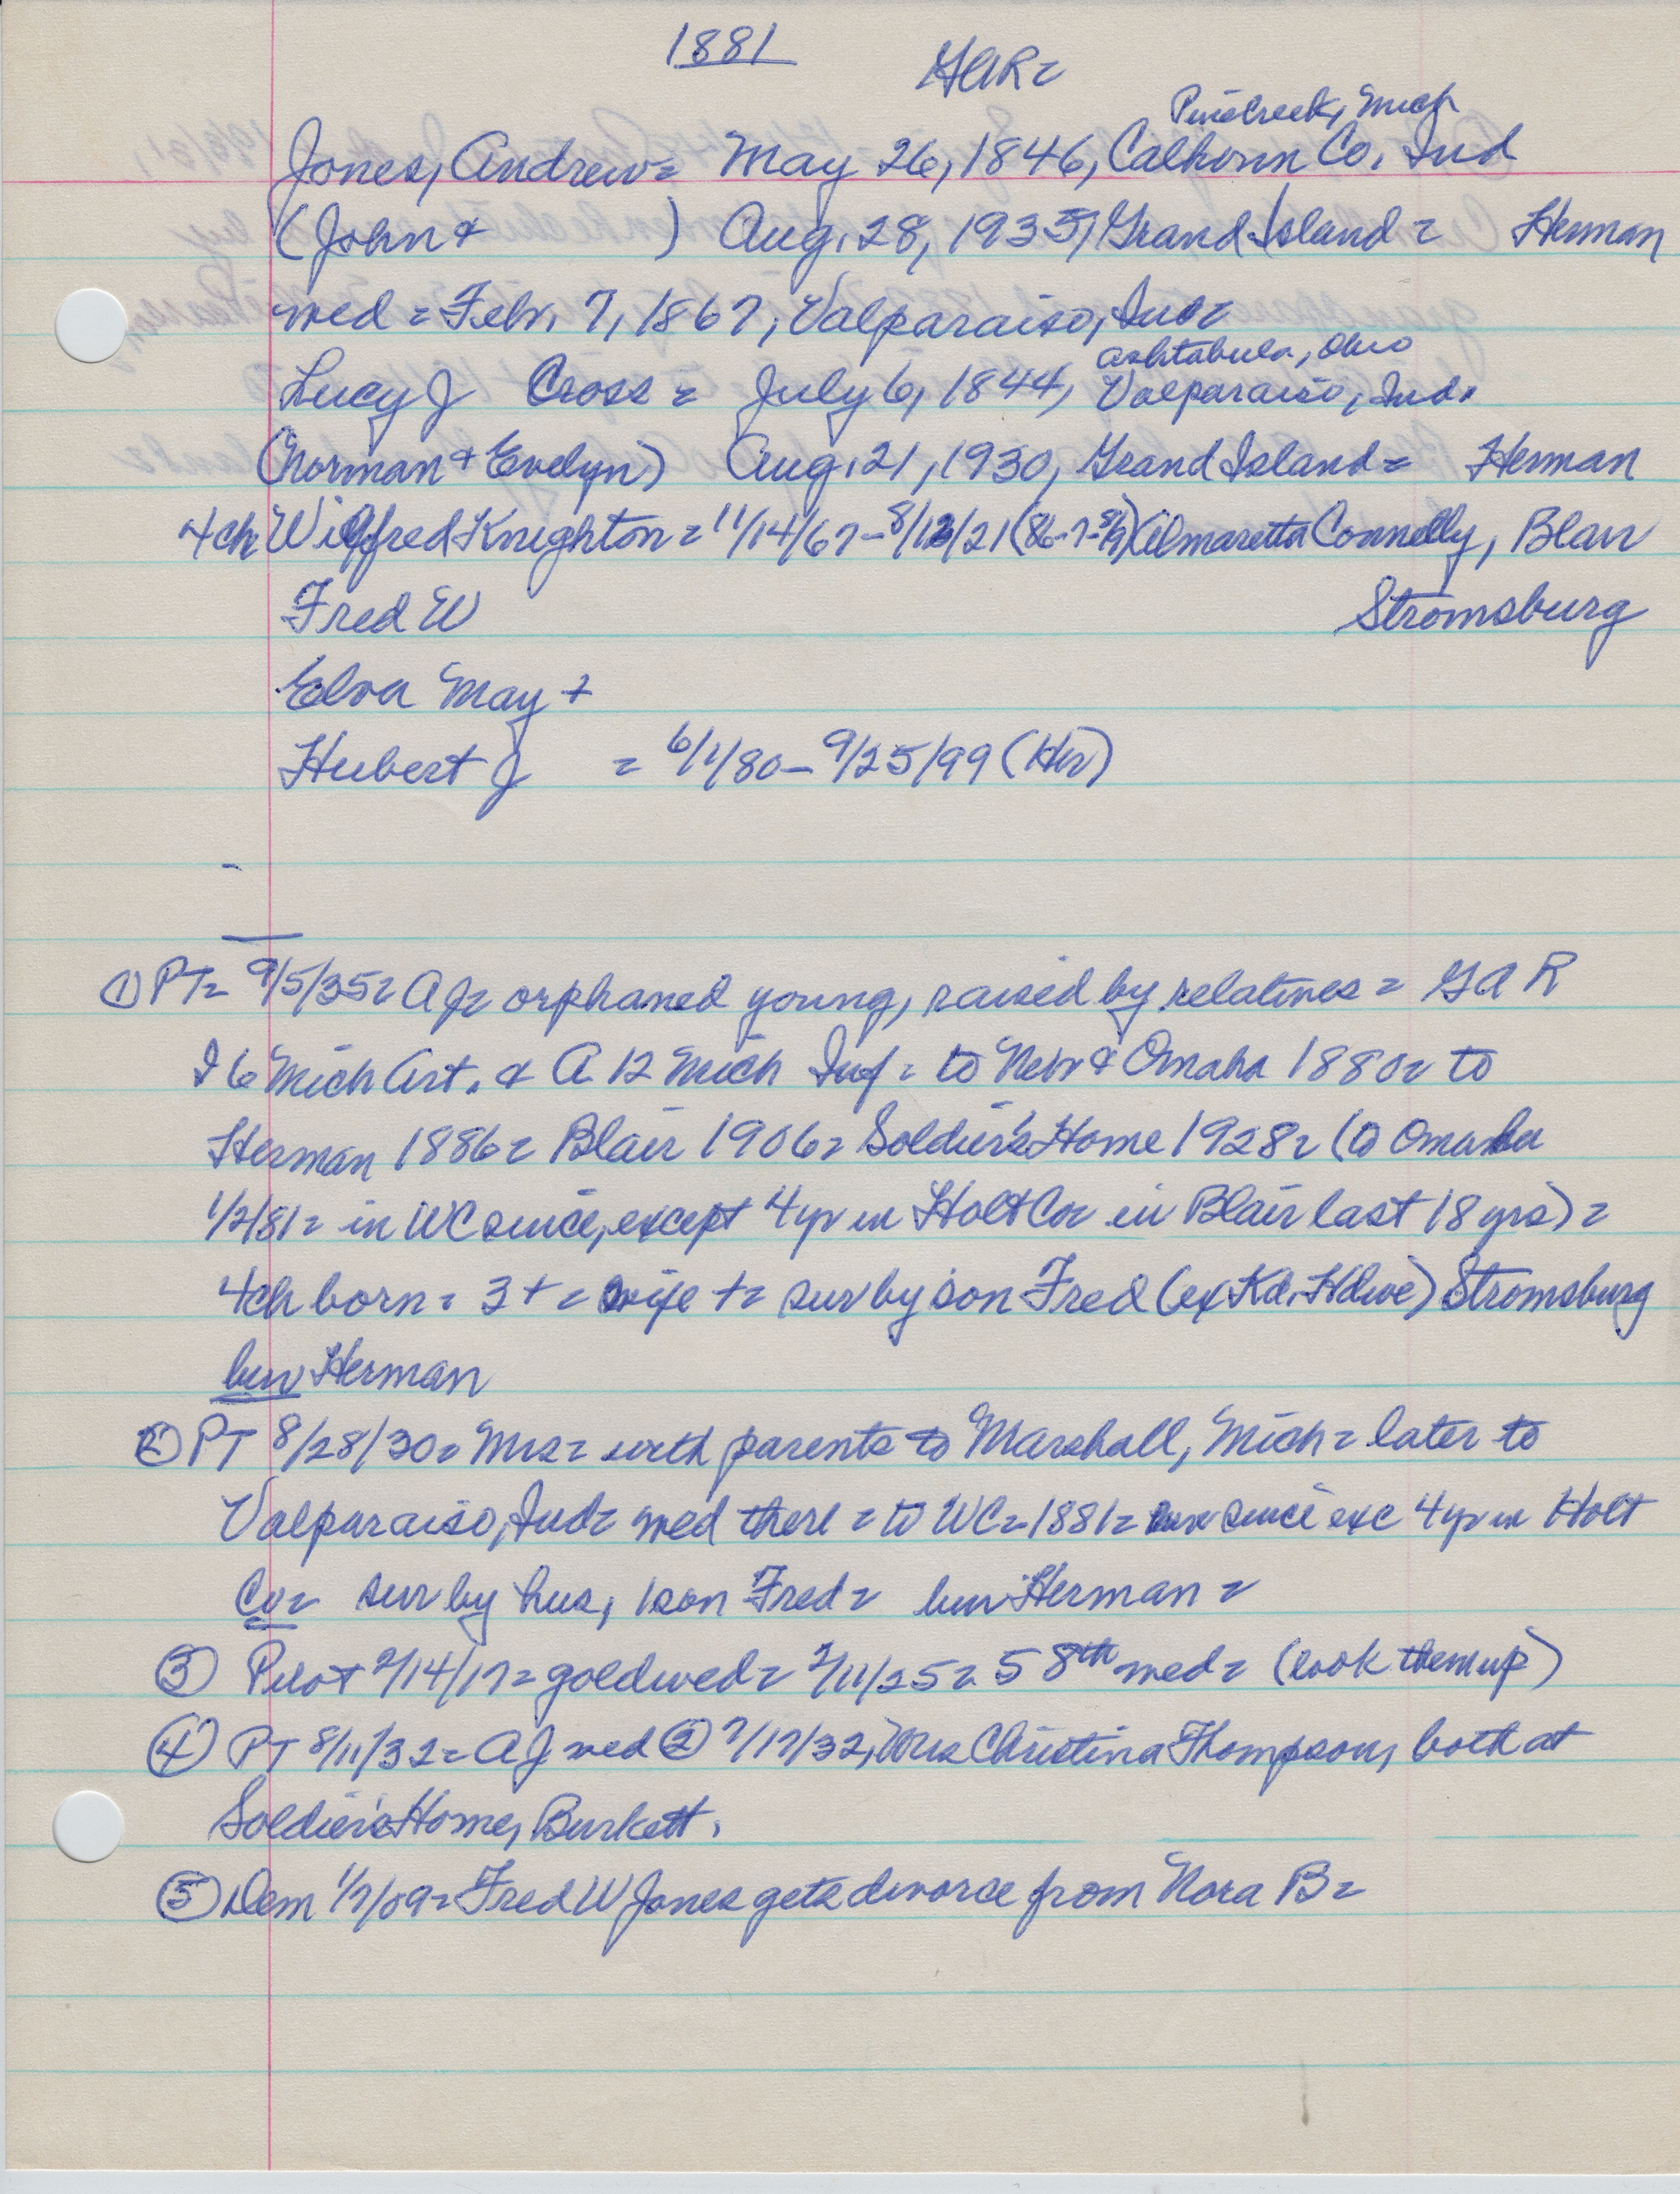 1881
GAR=
Pinecreek, Mich
Jones, Andrew= May 26, 1846, Calhoun Co. Ind
(John & ) Aug. 28, 1935, Grand Island = Herman
wed = Febr. 7, 1867, Valparaiso, Ind=
Ashtabula, Ohio
Lucy J Cross = July 6, 1844, Valparaiso, Ind.
(Norman & Evelyn) Aug. 21, 1930, Grand Island = Herman
4ch Wilffred Knighton = 11/14/67 - 8/12/21 (86-7-5/9) Almaretta Connelly, Blair
Fred W Stromsburg
Elva May +
Hubert J = 6/1/80 - 9/25/99 (Her)
① PT= 9/5/35= AJ= orphaned young, raised by relatives = GAR
I 6 Mich Art. & A 12 Mich Inf = to Nebr & Omaha 1880= to
Herman 1886= Blair 1906= Soldier's Home 1928= (to Omaha
1/2/81= in WC since, except 4 yr in Holt Co= in Blair last 18 yrs) =
4ch born = 3 + = wife += sur by son Fred (ex Kd. Hdwe) Stromsburg
bur Herman
② PT 8/28/30= Mrs= with parents to Marshall, Mich = later to
Valparaiso, Ind= wed there = to WC = 1881= since exc 4 yr in Holt
Co= sur by hus, 1 son Fred= bur Herman =
③ Pilot 2/14/17= gold wed= 2/11/25= 58th wed= (look them up)
④ PT 8/11/32= AJ wed ② 7/17/32, Mrs Christina Thompson, both at
Soldier's Home, Burkett.
⑤ Dem 1/7/09= Fred W Jones gets divorce from Nora B=